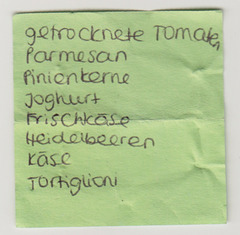 getrocknete Tomaten
Parmesan
Pinienkerne
Joghurt
Frischkäse
Heidelbeeren
Käse
Tortiglioni